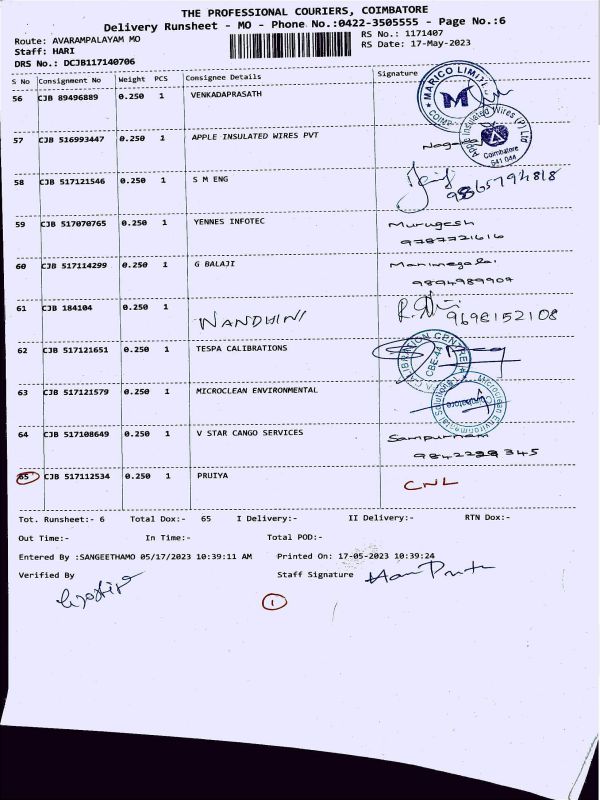 THE PROFESSIONAL COURIERS, COIMBATORE
Delivery Runsheet - MO - Phone No.:0422-3505555 - Page No.:6
Route: AVARAMPALAYAM MO RS No.: 1171407
Staff: HARI RS Date: 17-May-2023
DRS No.: DCJB117140706
S No Consignment No Weight PCS Consignee Details Signature
56 CJB 89496889 0.250 1 VENKADAPRASATH
MARICO LIMITED
57 CJB 516993447 0.250 1 APPLE INSULATED WIRES PVT
Apple Insulated Wires (P) Ltd
Coimbatore
641 044
58 CJB 517121546 0.250 1 S M ENG
59 CJB 517070765 0.250 1 YENNES INFOTEC Murugesh
9787721616
60 CJB 517114299 0.250 1 G BALAJI Manimegalai
9894989907
61 CJB 184104 0.250 1 NANDHINI
9698152108
62 CJB 517121651 0.250 1 TESPA CALIBRATIONS
CALIBRATION CENTRE
CBE-44
63 CJB 517121579 0.250 1 MICROCLEAN ENVIRONMENTAL
Coimbatore
64 CJB 517108649 0.250 1 V STAR CANGO SERVICES Sampurnam
9842228345
65 CJB 517112534 0.250 1 PRUIYA CNL
Tot. Runsheet:- 6 Total Dox:- 65 I Delivery:- II Delivery:- RTN Dox:-
Out Time:- In Time:- Total POD:-
Entered By :SANGEETHAMO 05/17/2023 10:39:11 AM Printed On: 17-05-2023 10:39:24
Verified By Staff Signature
1